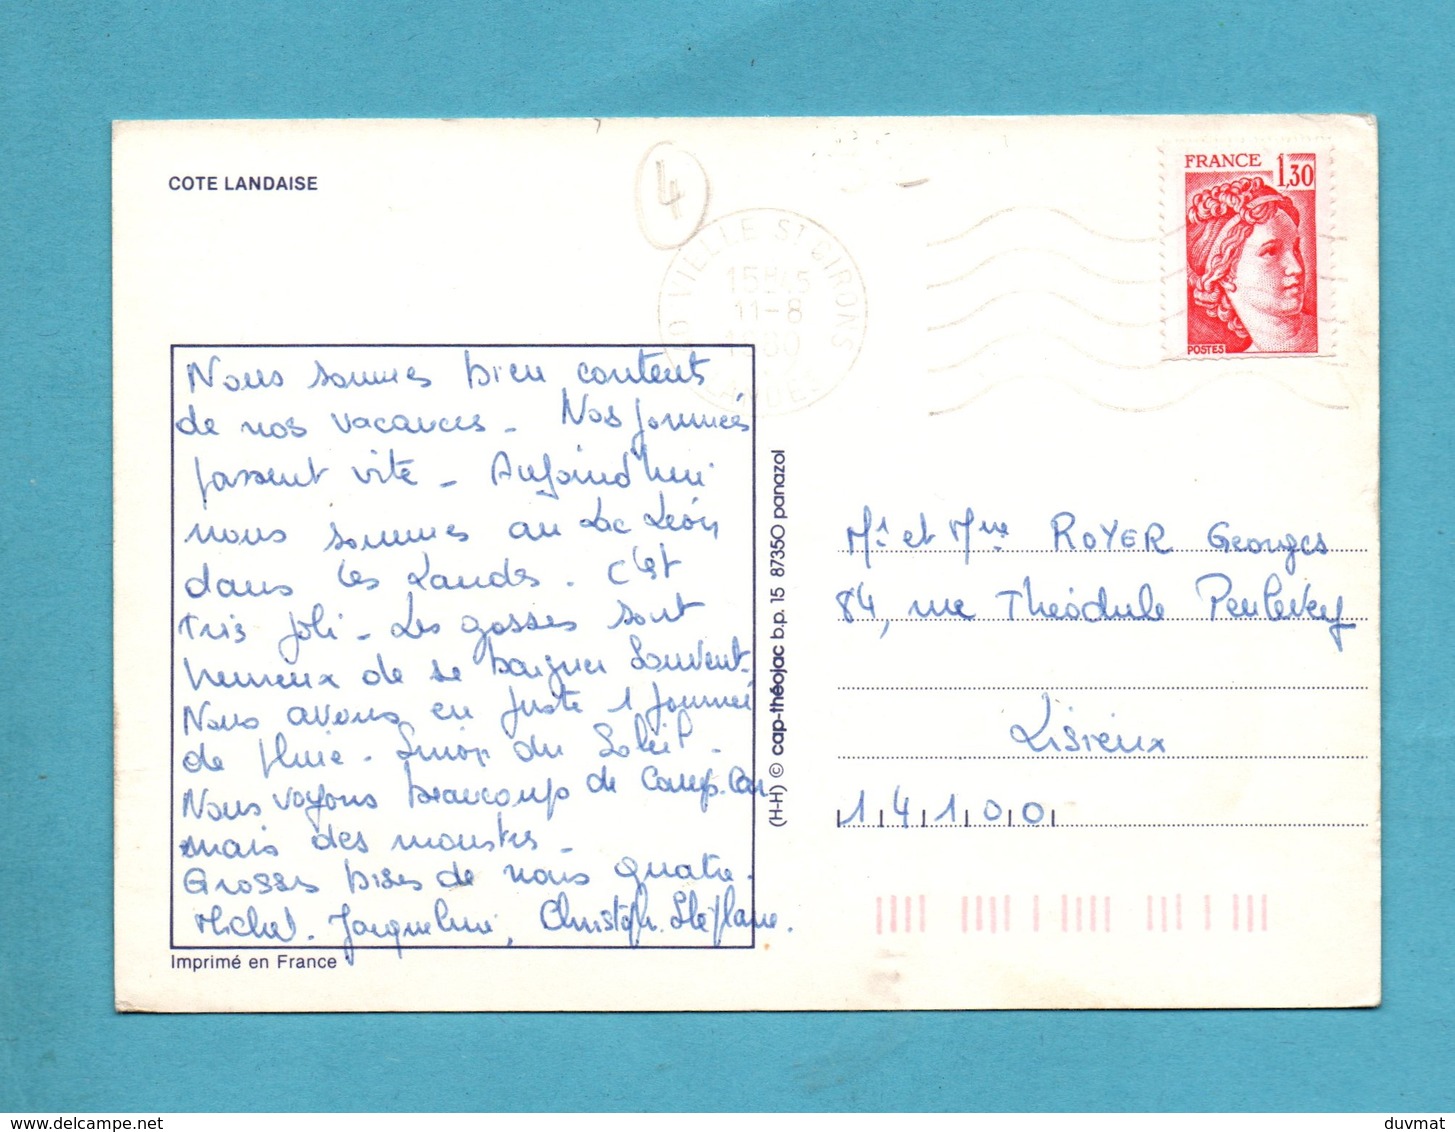 COTE LANDAISE
4
VIELLE ST GIRONS
15H45
11-8
1980
LANDES
FRANCE 1,30
POSTES
Nous sommes bien contents
de nos vacances - Nos journées
passent vite - Aujourd'hui
nous sommes au Lac Léon
dans les Landes. C'est
très joli - Les gosses sont
heureux de se baigner souvent.
Nous avons eu juste 1 journée
de pluie - Sinon du Soleil -
Nous voyons beaucoup de Camp. Car
mais des monstres -
Grosses bises de nous quatre.
Michel. Jacqueline, Christoph. Stéphane.
Imprimé en France
(H-H) © cap-théojac b.p. 15 87350 panazol
Mr et Mme ROYER Georges
84, rue Théodule Penlevey
Lisieux
14100
www.delcampe.net
duvmat